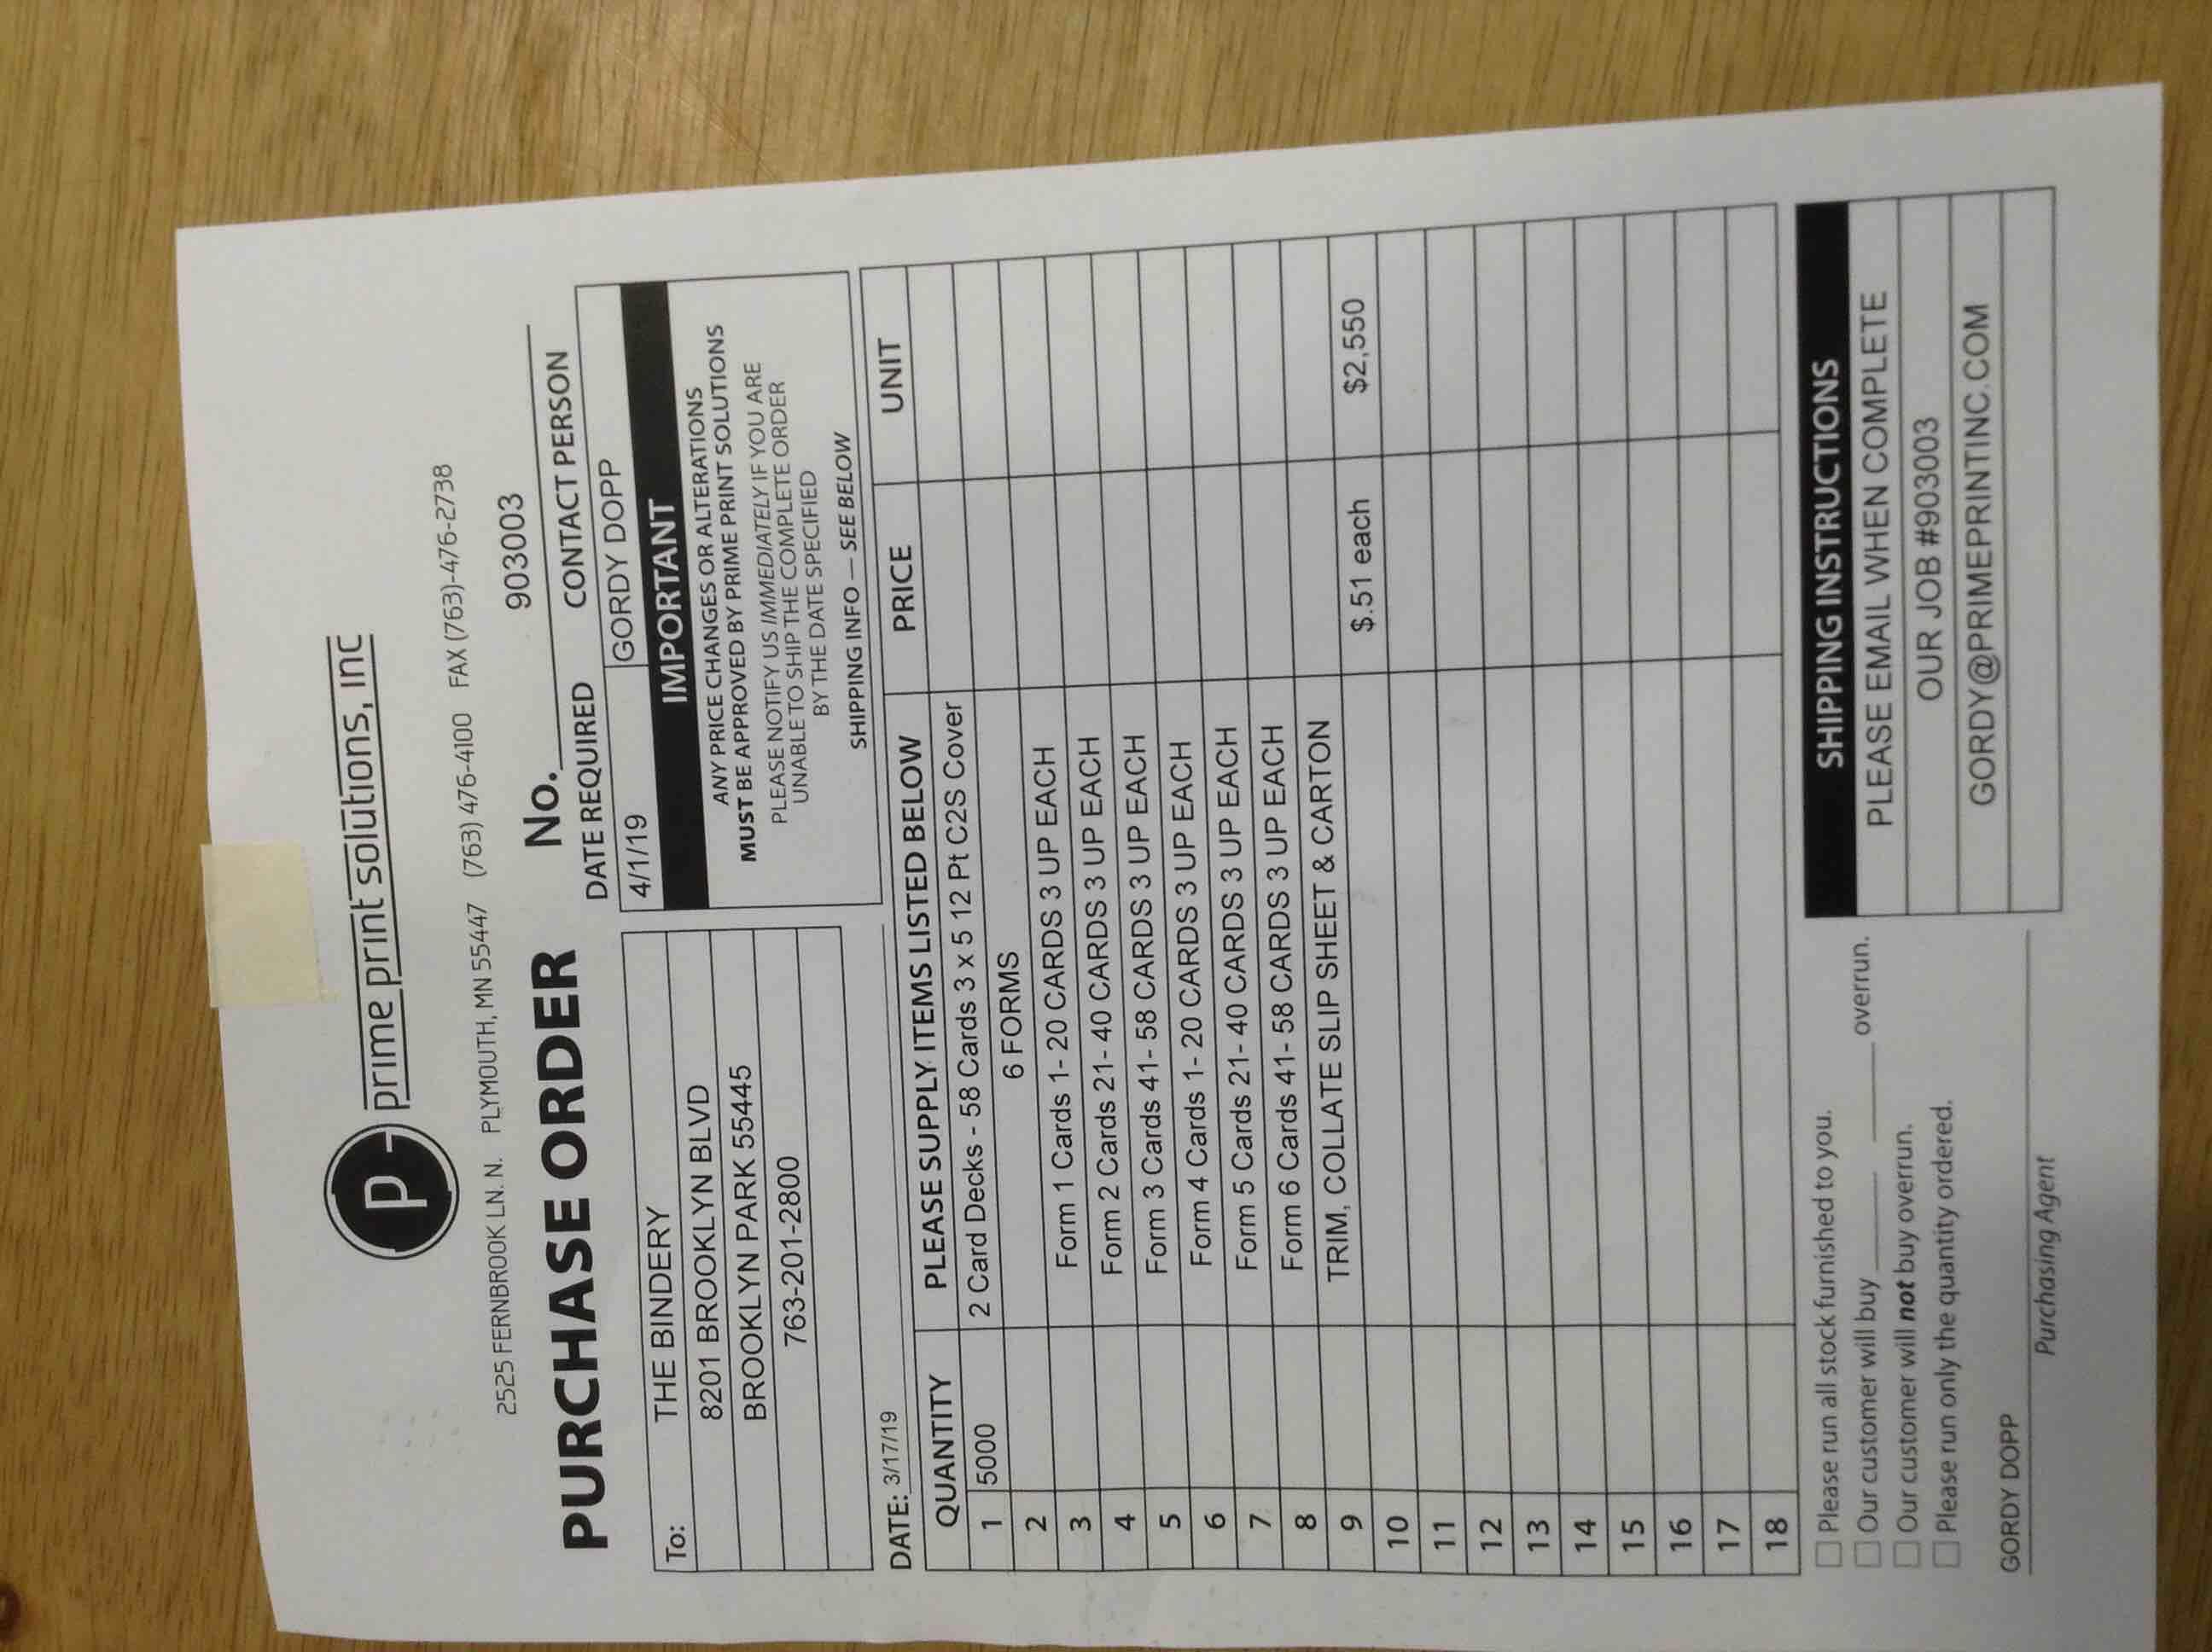 P
prime print solutions, inc
2525 FERNBROOK LN. N. PLYMOUTH, MN 55447 (763) 476-4100 FAX (763)-476-2738
PURCHASE ORDER No. 903003
DATE REQUIRED CONTACT PERSON
4/1/19 GORDY DOPP
To: THE BINDERY
8201 BROOKLYN BLVD
BROOKLYN PARK 55445
763-201-2800
IMPORTANT
ANY PRICE CHANGES OR ALTERATIONS
MUST BE APPROVED BY PRIME PRINT SOLUTIONS
PLEASE NOTIFY US IMMEDIATELY IF YOU ARE
UNABLE TO SHIP THE COMPLETE ORDER
BY THE DATE SPECIFIED
SHIPPING INFO — SEE BELOW
DATE: 3/17/19
QUANTITY PLEASE SUPPLY ITEMS LISTED BELOW PRICE UNIT
1 5000 2 Card Decks - 58 Cards 3 x 5 12 Pt C2S Cover
2 6 FORMS
3 Form 1 Cards 1- 20 CARDS 3 UP EACH
4 Form 2 Cards 21- 40 CARDS 3 UP EACH
5 Form 3 Cards 41- 58 CARDS 3 UP EACH
6 Form 4 Cards 1- 20 CARDS 3 UP EACH
7 Form 5 Cards 21- 40 CARDS 3 UP EACH
8 Form 6 Cards 41- 58 CARDS 3 UP EACH
9 TRIM, COLLATE SLIP SHEET & CARTON $.51 each $2,550
10
11
12
13
14
15
16
17
18
Please run all stock furnished to you.
Our customer will buy ______ ______ overrun.
Our customer will not buy overrun.
Please run only the quantity ordered.
GORDY DOPP
Purchasing Agent
SHIPPING INSTRUCTIONS
PLEASE EMAIL WHEN COMPLETE
OUR JOB #903003
GORDY@PRIMEPRINTINC.COM